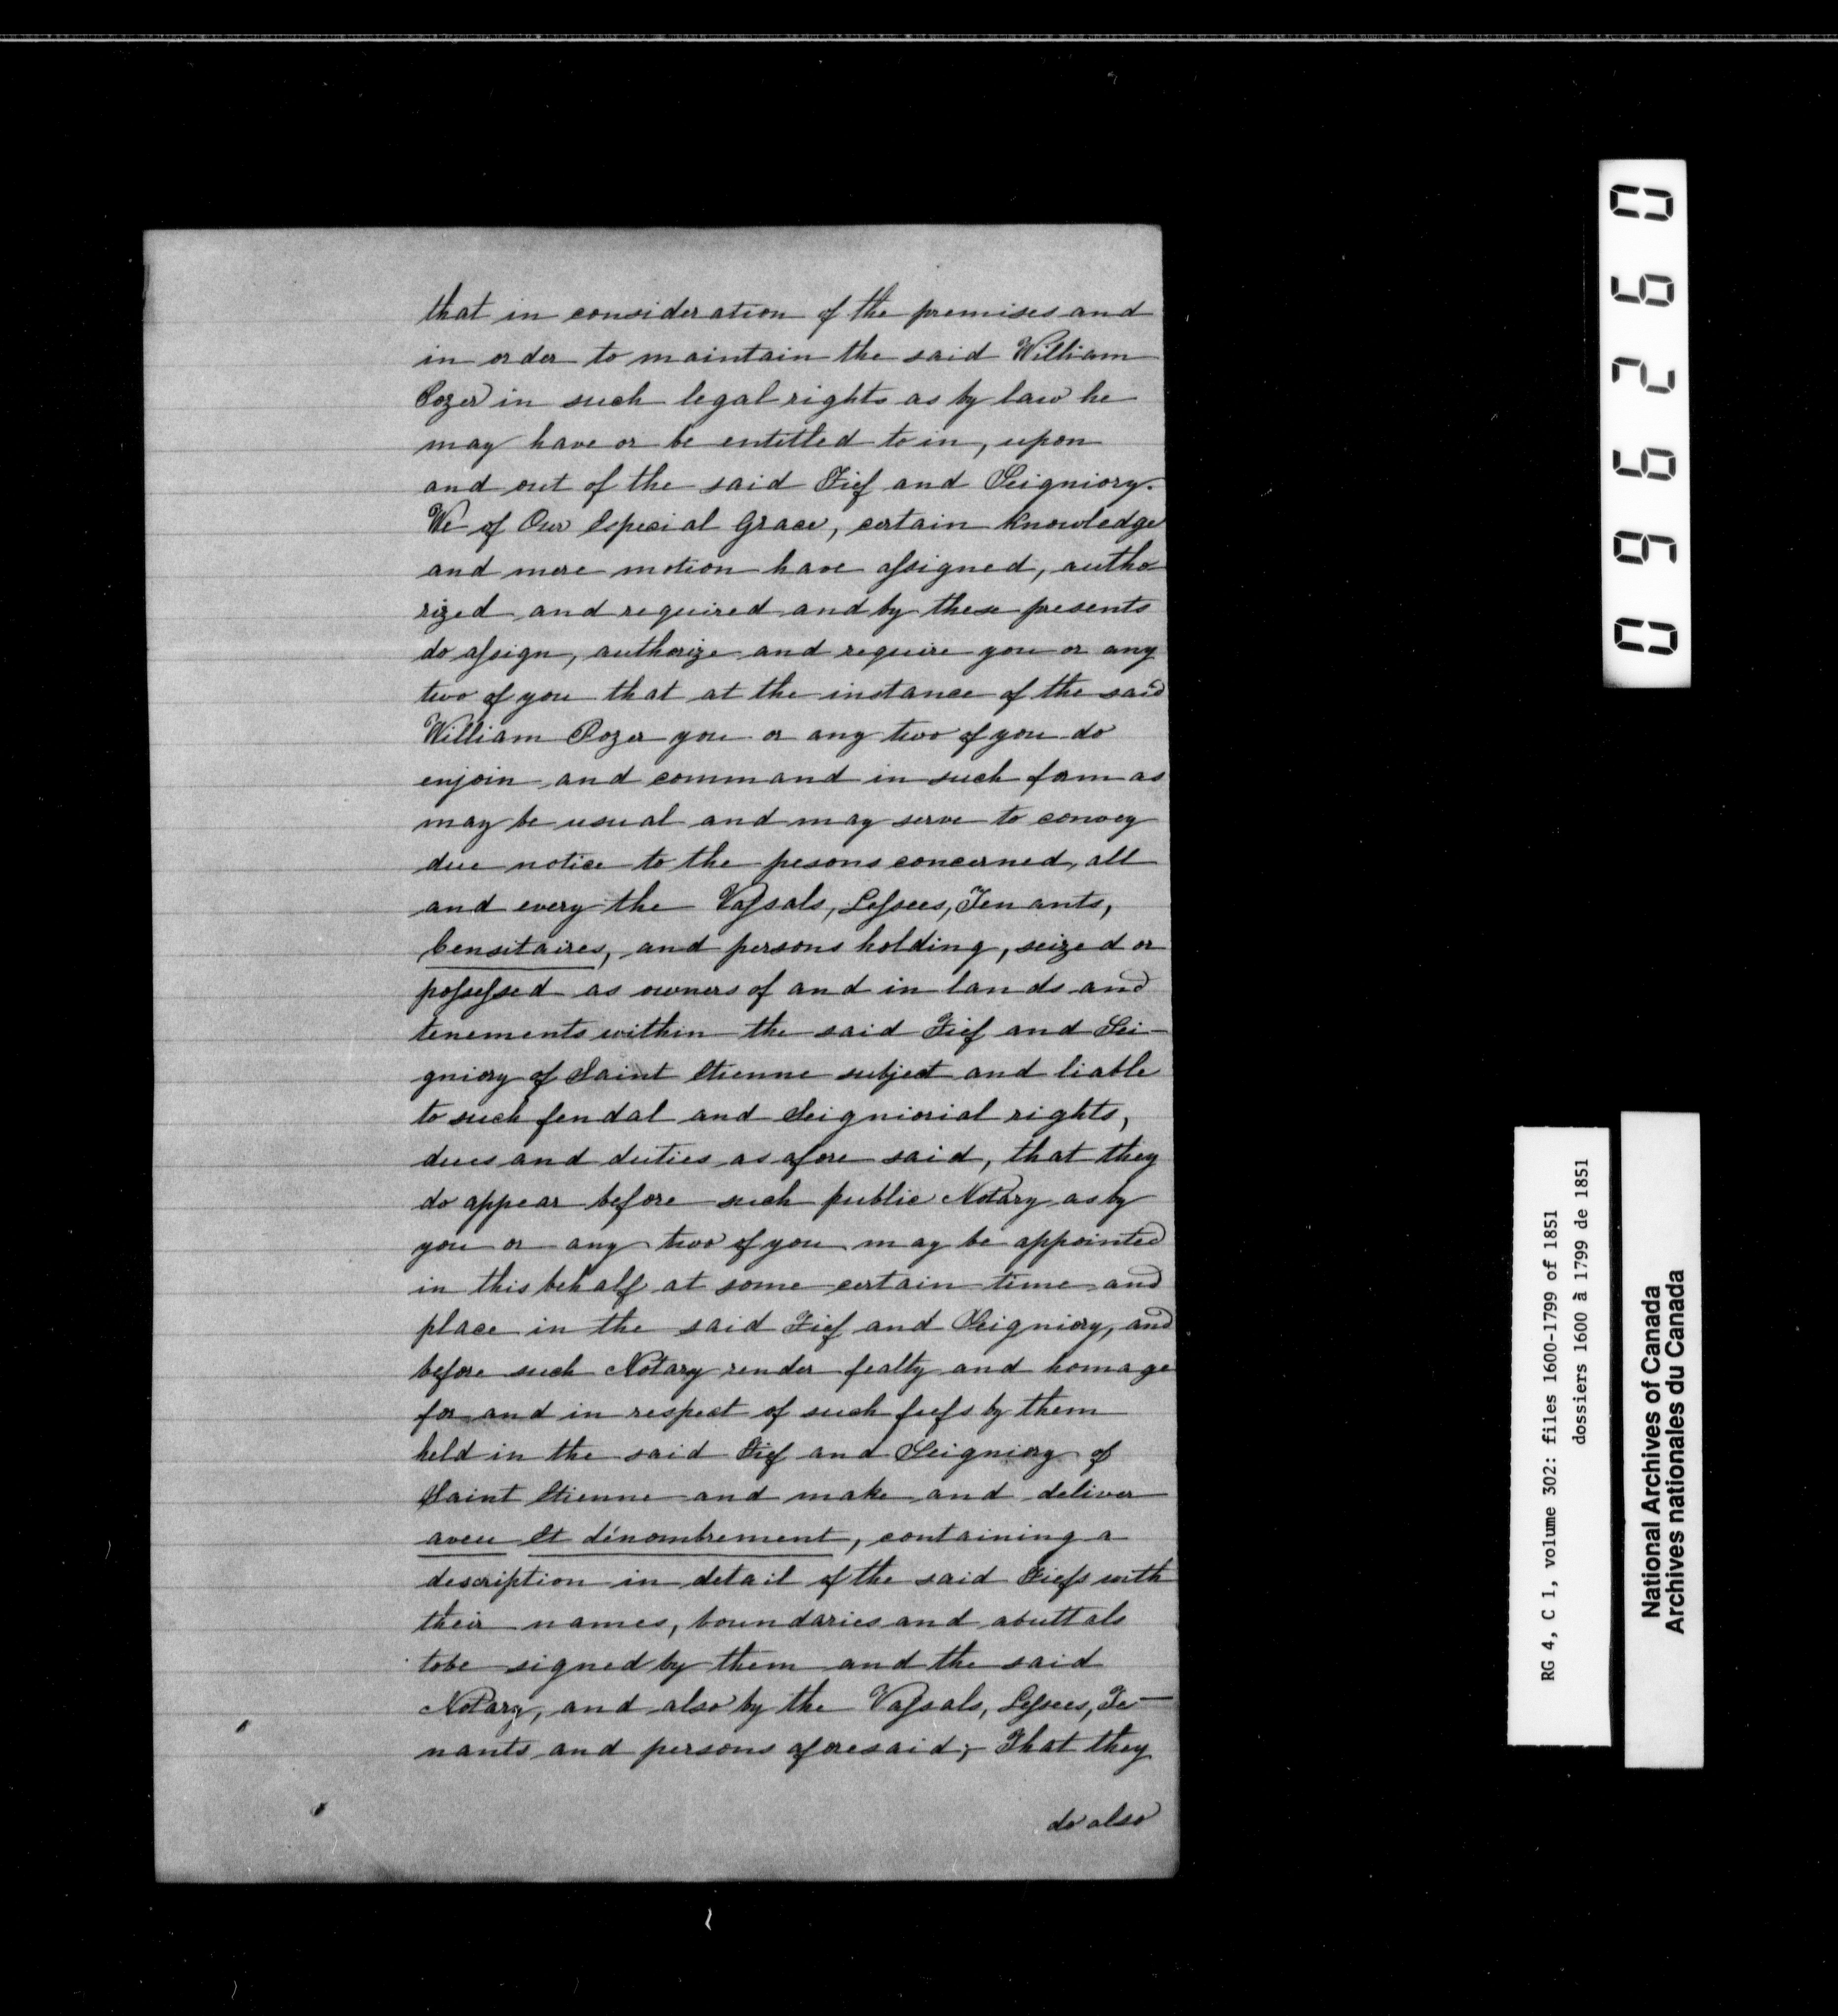 that in consideration of the premises and
in order to maintain the said William
Pozer in such legal rights as by law he
may have or be entitled to in, upon
and out of the said Fief and Seigniory.
We of Our Especial Grace, certain knowledge
and mere motion have assigned, autho
rized and required and by these presents
do assign, authorize and require you or any
two of you that at the instance of the said
William Pozer you or any two of you do
enjoin and command in such form as
may be usual and may serve to convey
due notice to the pesons concerned, all
and every the Vassals, Lessees, Tenants,
Censitaires, and persons holding, seized or
possessed as owners of and in lands and
tenements within the said Fief and Sei-
gniory of Saint Etienne subject and liable
to such feudal and Seigniorial rights,
dues and duties as afore said, that they
do appear before such public Notary as by
you or any two of you may be appointed
in this behalf at some certain time and
place in the said Fief and Seigniory, and
before such Notary render fealty and homage
for and in respect of such fiefs by them
held in the said Fief and Seigniory of
Saint Etienne and make and deliver
aveu Et dénombrement, containing a
description in detail of the said Fiefs with
their names, boundaries and abuttals
to be signed by them and the said
Notary, and also by the Vassals, Lessees, Te-
nants and persons aforesaid; That they
do also
096260
RG 4, C 1, volume 302: files 1600-1799 of 1851
dossiers 1600 à 1799 de 1851
National Archives of Canada
Archives nationales du Canada